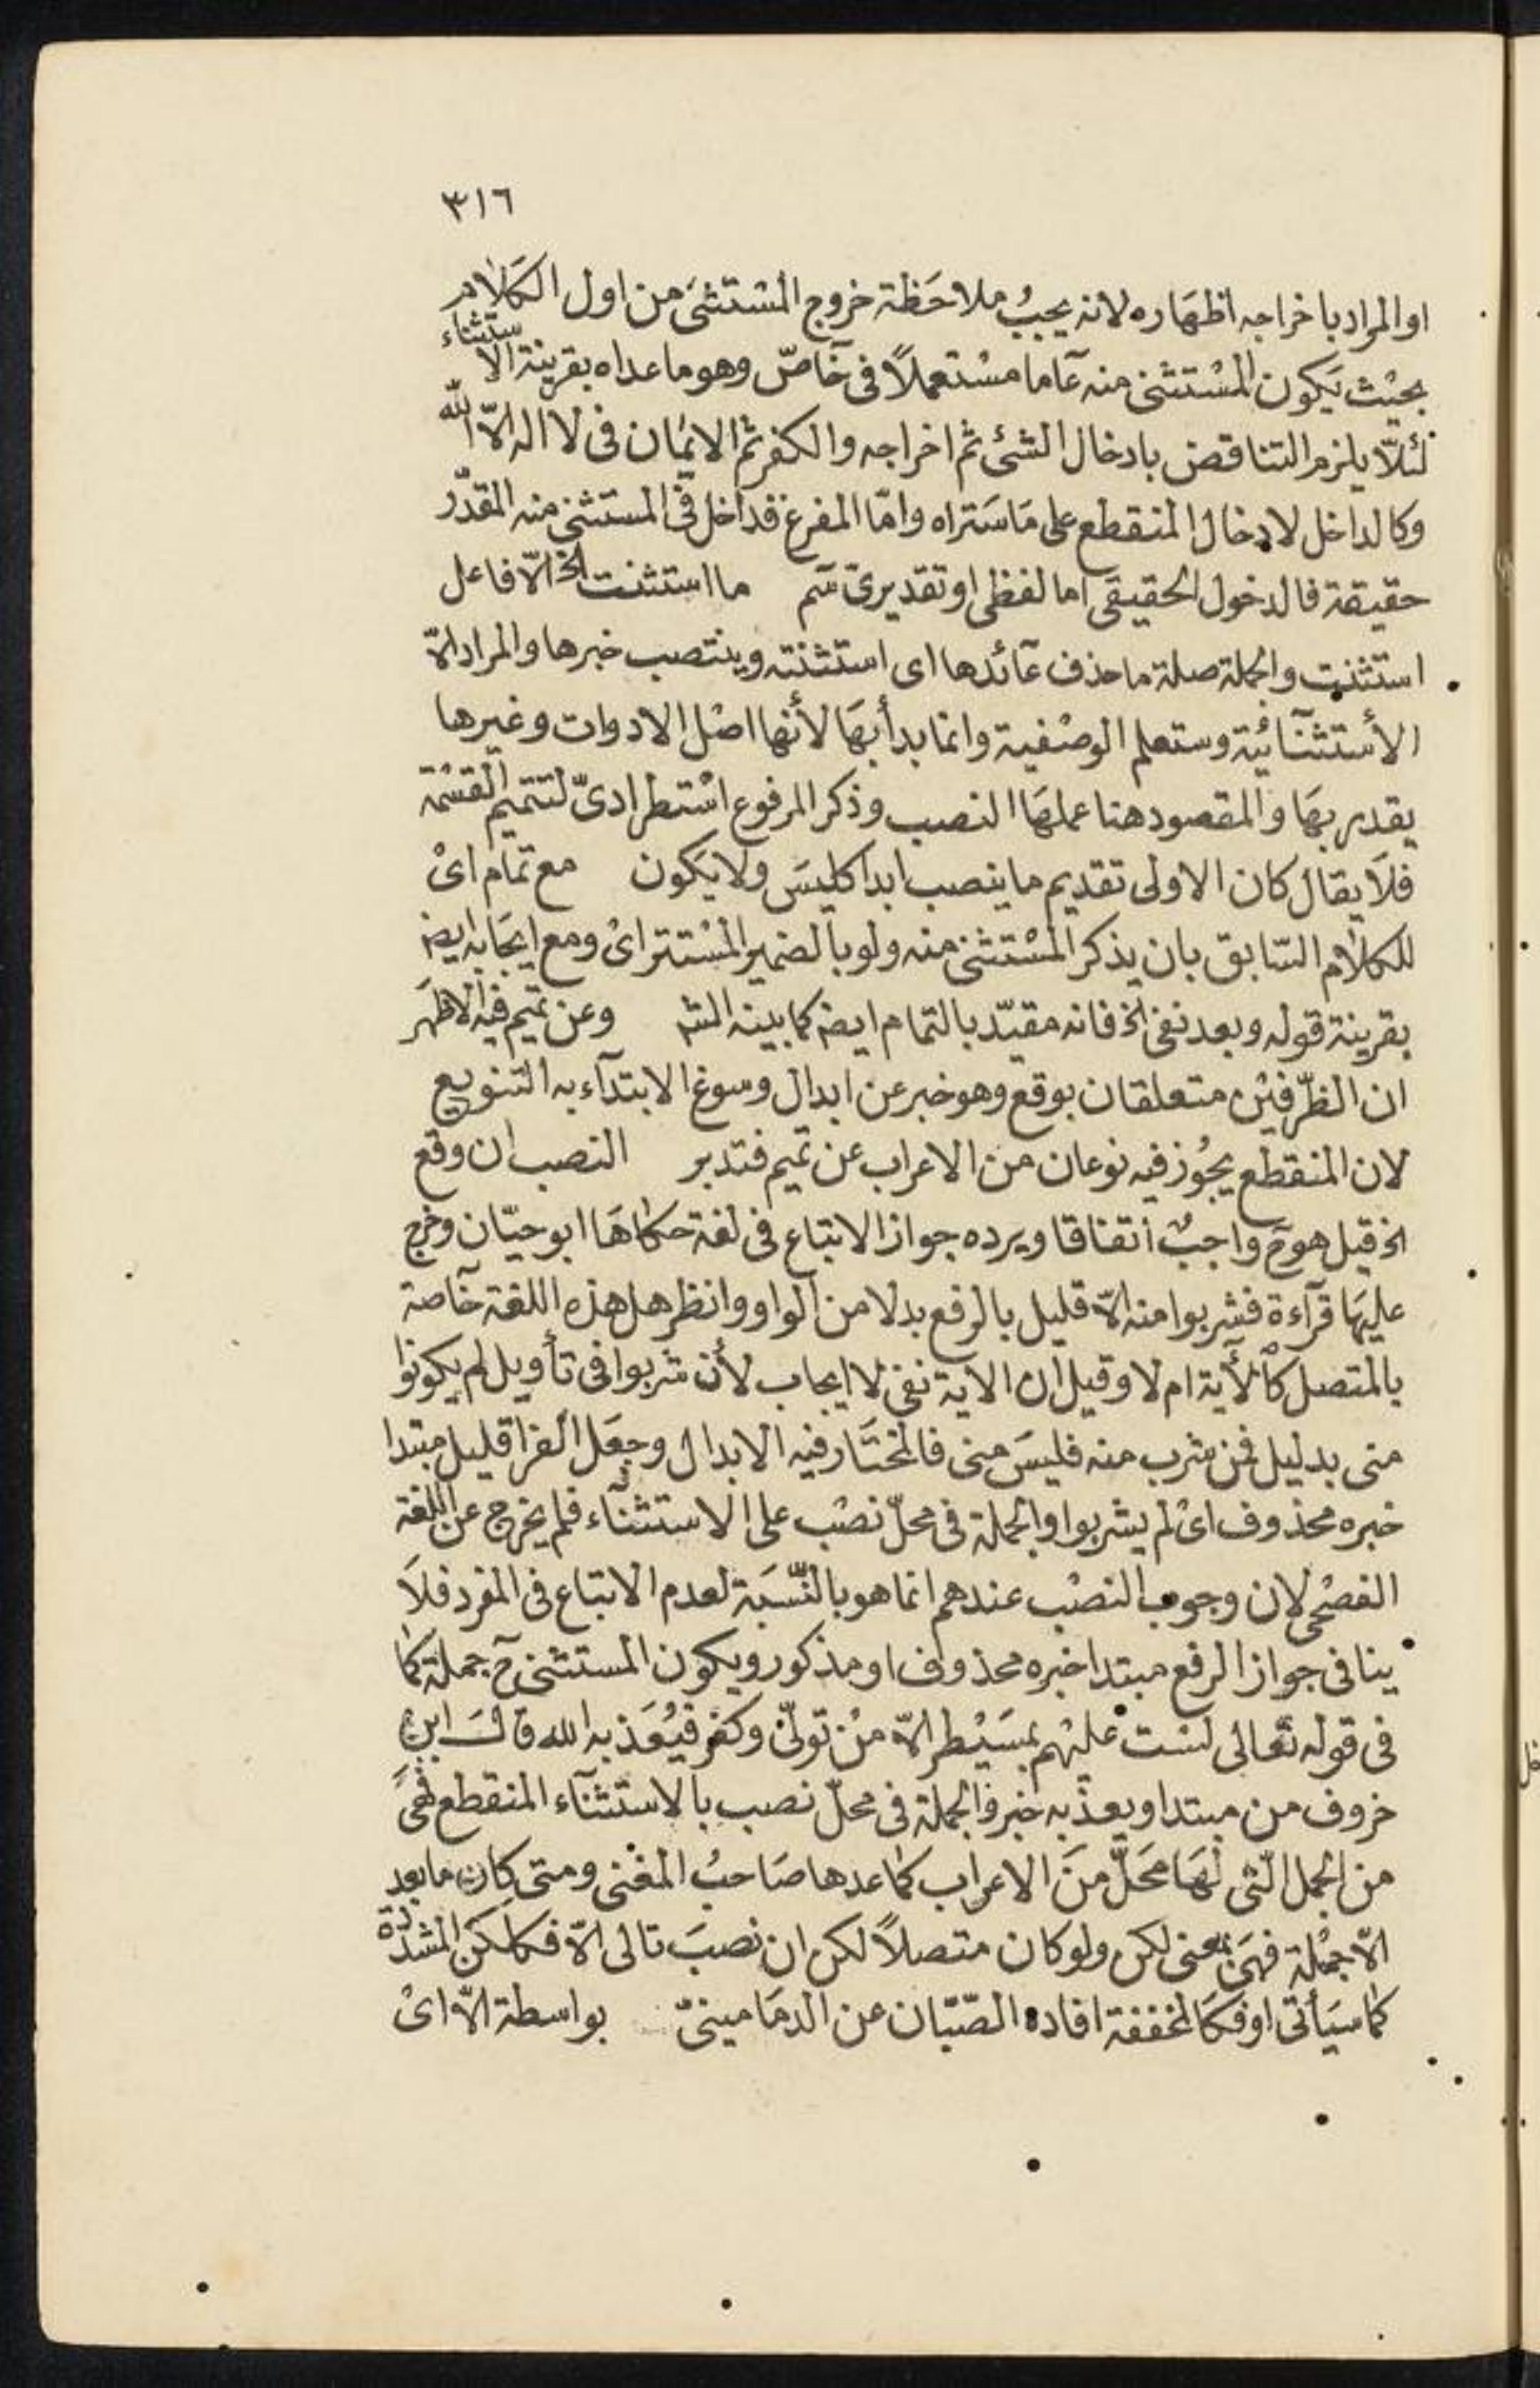 ٣١٦
او المراد باخراجه اظهاره لانه يجبُ ملاحَظة خروج المسْتثنىَ من اول الكَلام
بحيْث يَكون المسْتثنى منه عآما مسْتعملاً فى خآصّ وهو ما عداه بقرينة الاستثناء
لئلّا يلزم التناقض بادخال الشئ ثم اخراجه والكفر ثم الايمَان فى لا اله الّا الله
وكالداخل لادخال المنقطع على مَا سَتراه وامّا المفرغ فداخل فى المستثنى منه المقدّر
حقيقة فالدخول الحقيقى اما لفظى او تقديرىّ سم ما استثنت الخ الّا فاعل
استثنت والجملة صلة ما حذف عآئدها اى استثنته وينتصب خبرها والمراد الّا
الأستثنآئية وستعلم الوصْفية وانما بدأ بهَا لأنها اصْل الادوات وغيرها
يقدر بهَا والمقصود هنا عملهَا النصب وذكر المرفوع اسْتطرادىّ لتتميم القسْمة
فلَا يقال كان الاولى تقديم ما ينصب ابدا كليسَ ولا يَكون مع تمام اىْ
للكلام السّابق بان يذكر المسْتثنى منه ولو بالضمير المسْتتر اىْ ومع ايجَابه ايضـ
بقرينة قوله وبعد نفى الخ فانه مقيّد بالتمام ايضـ كما بينه الشـ وعن تميم فيه الاظهَر
ان الظّرفيْن متعلقان بوقع وهو خبر عن ابدال وسوغ الابتدآء به التنويع
لان المنقطع يجُوز فيه نوعان من الاعراب عن تميم فتدبر النصب ان وقع
الخ قيل هو مَ واجبٌ اتفاقا ويرده جواز الاتباع فى لغة حكاهَا ابو حيّان وخرج
عليهَا قرآءة فشربوا منه الّا قليل بالرفع بدلا من الواو وانظر هل هذه اللغة خآصة
بالمتصل كالأية ام لا وقيل ان الاية نفى لا ايجاب لأن شربوا فى تأويل لم يكونوا
منى بدليل فمن شرب منه فليسَ منى فالمختَار فيه الابدال وجعَل الفرا قليل مبتدا
خبره محذوف اىْ لم يشربوا والجملة فى محلّ نصْب على الاستثنآء فلم يخرج عن اللغة
الفصْحى لان وجوب النصْب عندهم انما هو بالنّسْبَة لعدم الاتباع فى المفرد فلَا
ينافى جواز الرفع مبتدا خبره محذوف او مذكور ويكون المستثنى ح جملة كما
فى قوله تعَالى لسْت عليْهم بمسَيْطر الّا منْ تولّىْ وكفر فيُعَذبه الله قالَ ابن
خروف من مبتدا ويعذّبه خبر والجملة فى محلّ نصب بالاستثنآء المنقطع فهىَ
من الجمل الّتى لهَا محَلّ منَ الاعراب كما عدها صَاحبُ المغْنى ومتى كان ما بعد
الّا جمْلة فهىَ بمعنى لكن ولو كان متصلاً لكن ان نصبَ تالى الّا فكلكنّ المشدّدة
كما سَيأتى او فكَالمخففة افاده الصّبّان عن الدمَامينىّ بواسطة الّا اىْ